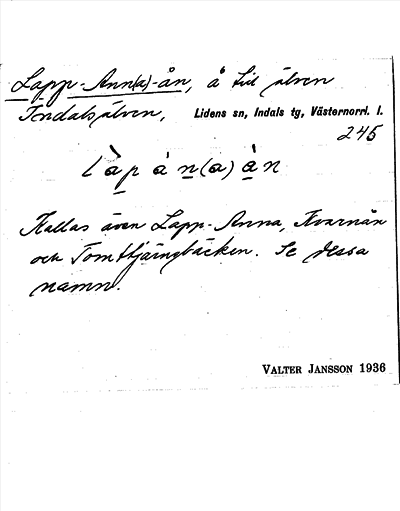 Lapp-Ann(a)-ån, å till älven
Indalsälven, Lidens sn, Indals tg, Västernorrl. l.
245
làp à n(a) àn
Kallas även Lapp-Anna, Kvarnån
och Tomttjärnbäcken. Se dessa
namn.
VALTER JANSSON 1936